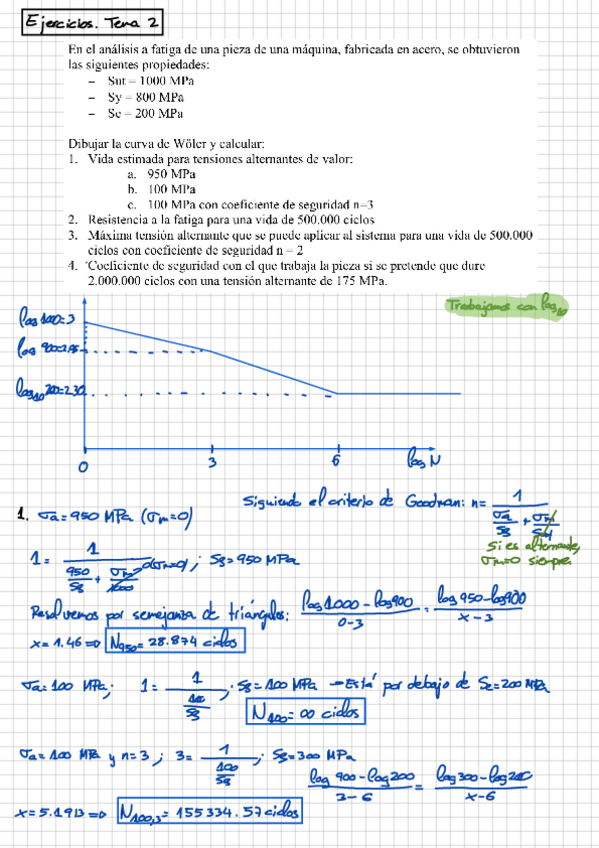 Ejercicios. Tema 2
En el análisis a fatiga de una pieza de una máquina, fabricada en acero, se obtuvieron
las siguientes propiedades:
– Sut = 1000 MPa
– Sy = 800 MPa
– Se = 200 MPa
Dibujar la curva de Wöler y calcular:
1. Vida estimada para tensiones alternantes de valor:
a. 950 MPa
b. 100 MPa
c. 100 MPa con coeficiente de seguridad n=3
2. Resistencia a la fatiga para una vida de 500.000 ciclos
3. Máxima tensión alternante que se puede aplicar al sistema para una vida de 500.000
ciclos con coeficiente de seguridad n = 2
4. Coeficiente de seguridad con el que trabaja la pieza si se pretende que dure
2.000.000 ciclos con una tensión alternante de 175 MPa.
Trabajamos con log10
log 1000=3
log 900=2.95
log10 200=2.30
0 3 6 log N
Siguiendo el criterio de Goodman: n= 1 / (σa/Sf + σm/Sut)
Si es alternante,
σm=0 siempre.
1. σa=950 MPa (σm=0)
1= 1 / (950/Sf + σm/1000) (σm=0) ; Sf=950 MPa
Resolvemos por semejanza de triángulos: (log 1000 - log 900)/(0-3) = (log 950 - log 900)/(x-3)
x=1.46 => N950= 28.874 ciclos
σa=100 MPa; 1= 1/(100/Sf) ; Sf=100 MPa → Está por debajo de Se=200 MPa
N100= ∞ ciclos
σa=100 MPa y n=3 ; 3= 1/(100/Sf) ; Sf=300 MPa
(log 900 - log 200)/(3-6) = (log 300 - log 200)/(x-6)
x=5.1913 => N100,3= 155334.57 ciclos